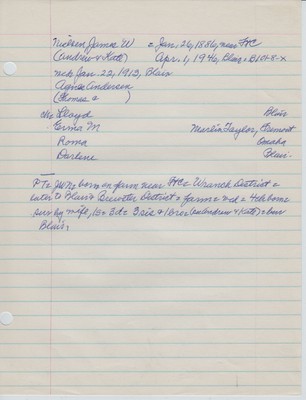 Nielsen James W = Jan. 26, 1886, near FtC
(Andrew & Kate) Apr. 1, 1946, Blair = B101-8-X
mck Jan. 22, 1913, Blair
Agnes Andersen
(Thomas & )
Ch= Lloyd Blair
Erma M Marlin Taylor, Fremont
Roma Omaha
Darlene Blair
PT = JWN = born on farm near FtC = Wranch District =
later to Blair = Brewster District = farm = wed = 4ch born =
surv by wife, 1s = 3d = 3 sis & 1 bro = (Andrew & Kate) = bur
Blair,